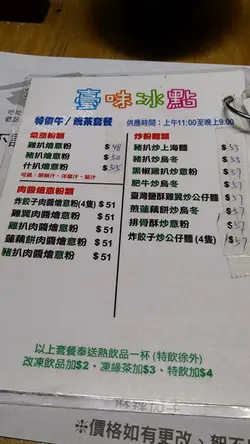 臺味冰點
特價午/晚茶套餐 供應時間：上午11:00至晚上9:00
燴意粉類
雞扒燴意粉 $48
豬扒燴意粉 $50
什扒燴意粉 $55
可選：黑椒汁、洋蔥汁、茄汁
肉醬燴意粉類
炸餃子肉醬燴意粉(4隻) $51
雞翼肉醬燴意粉 $51
雞扒肉醬燴意粉 $51
蓮藕餅肉醬燴意粉 $51
豬扒肉醬燴意粉 $51
炒粉麵類
豬扒炒上海麵 $53
豬扒炒烏冬 $53
黑椒雞扒炒意粉 $57
肥牛炒烏冬 $57
臺灣鹽酥雞翼炒公仔麵
煎蓮藕餅炒烏冬 $57
排骨酥炒意粉 $57
炸餃子炒公仔麵(4隻)
以上套餐奉送熱飲品一杯 (特飲除外)
改凍飲品加$2、凍綠茶加$3、特飲加$4
※價格如有更改、